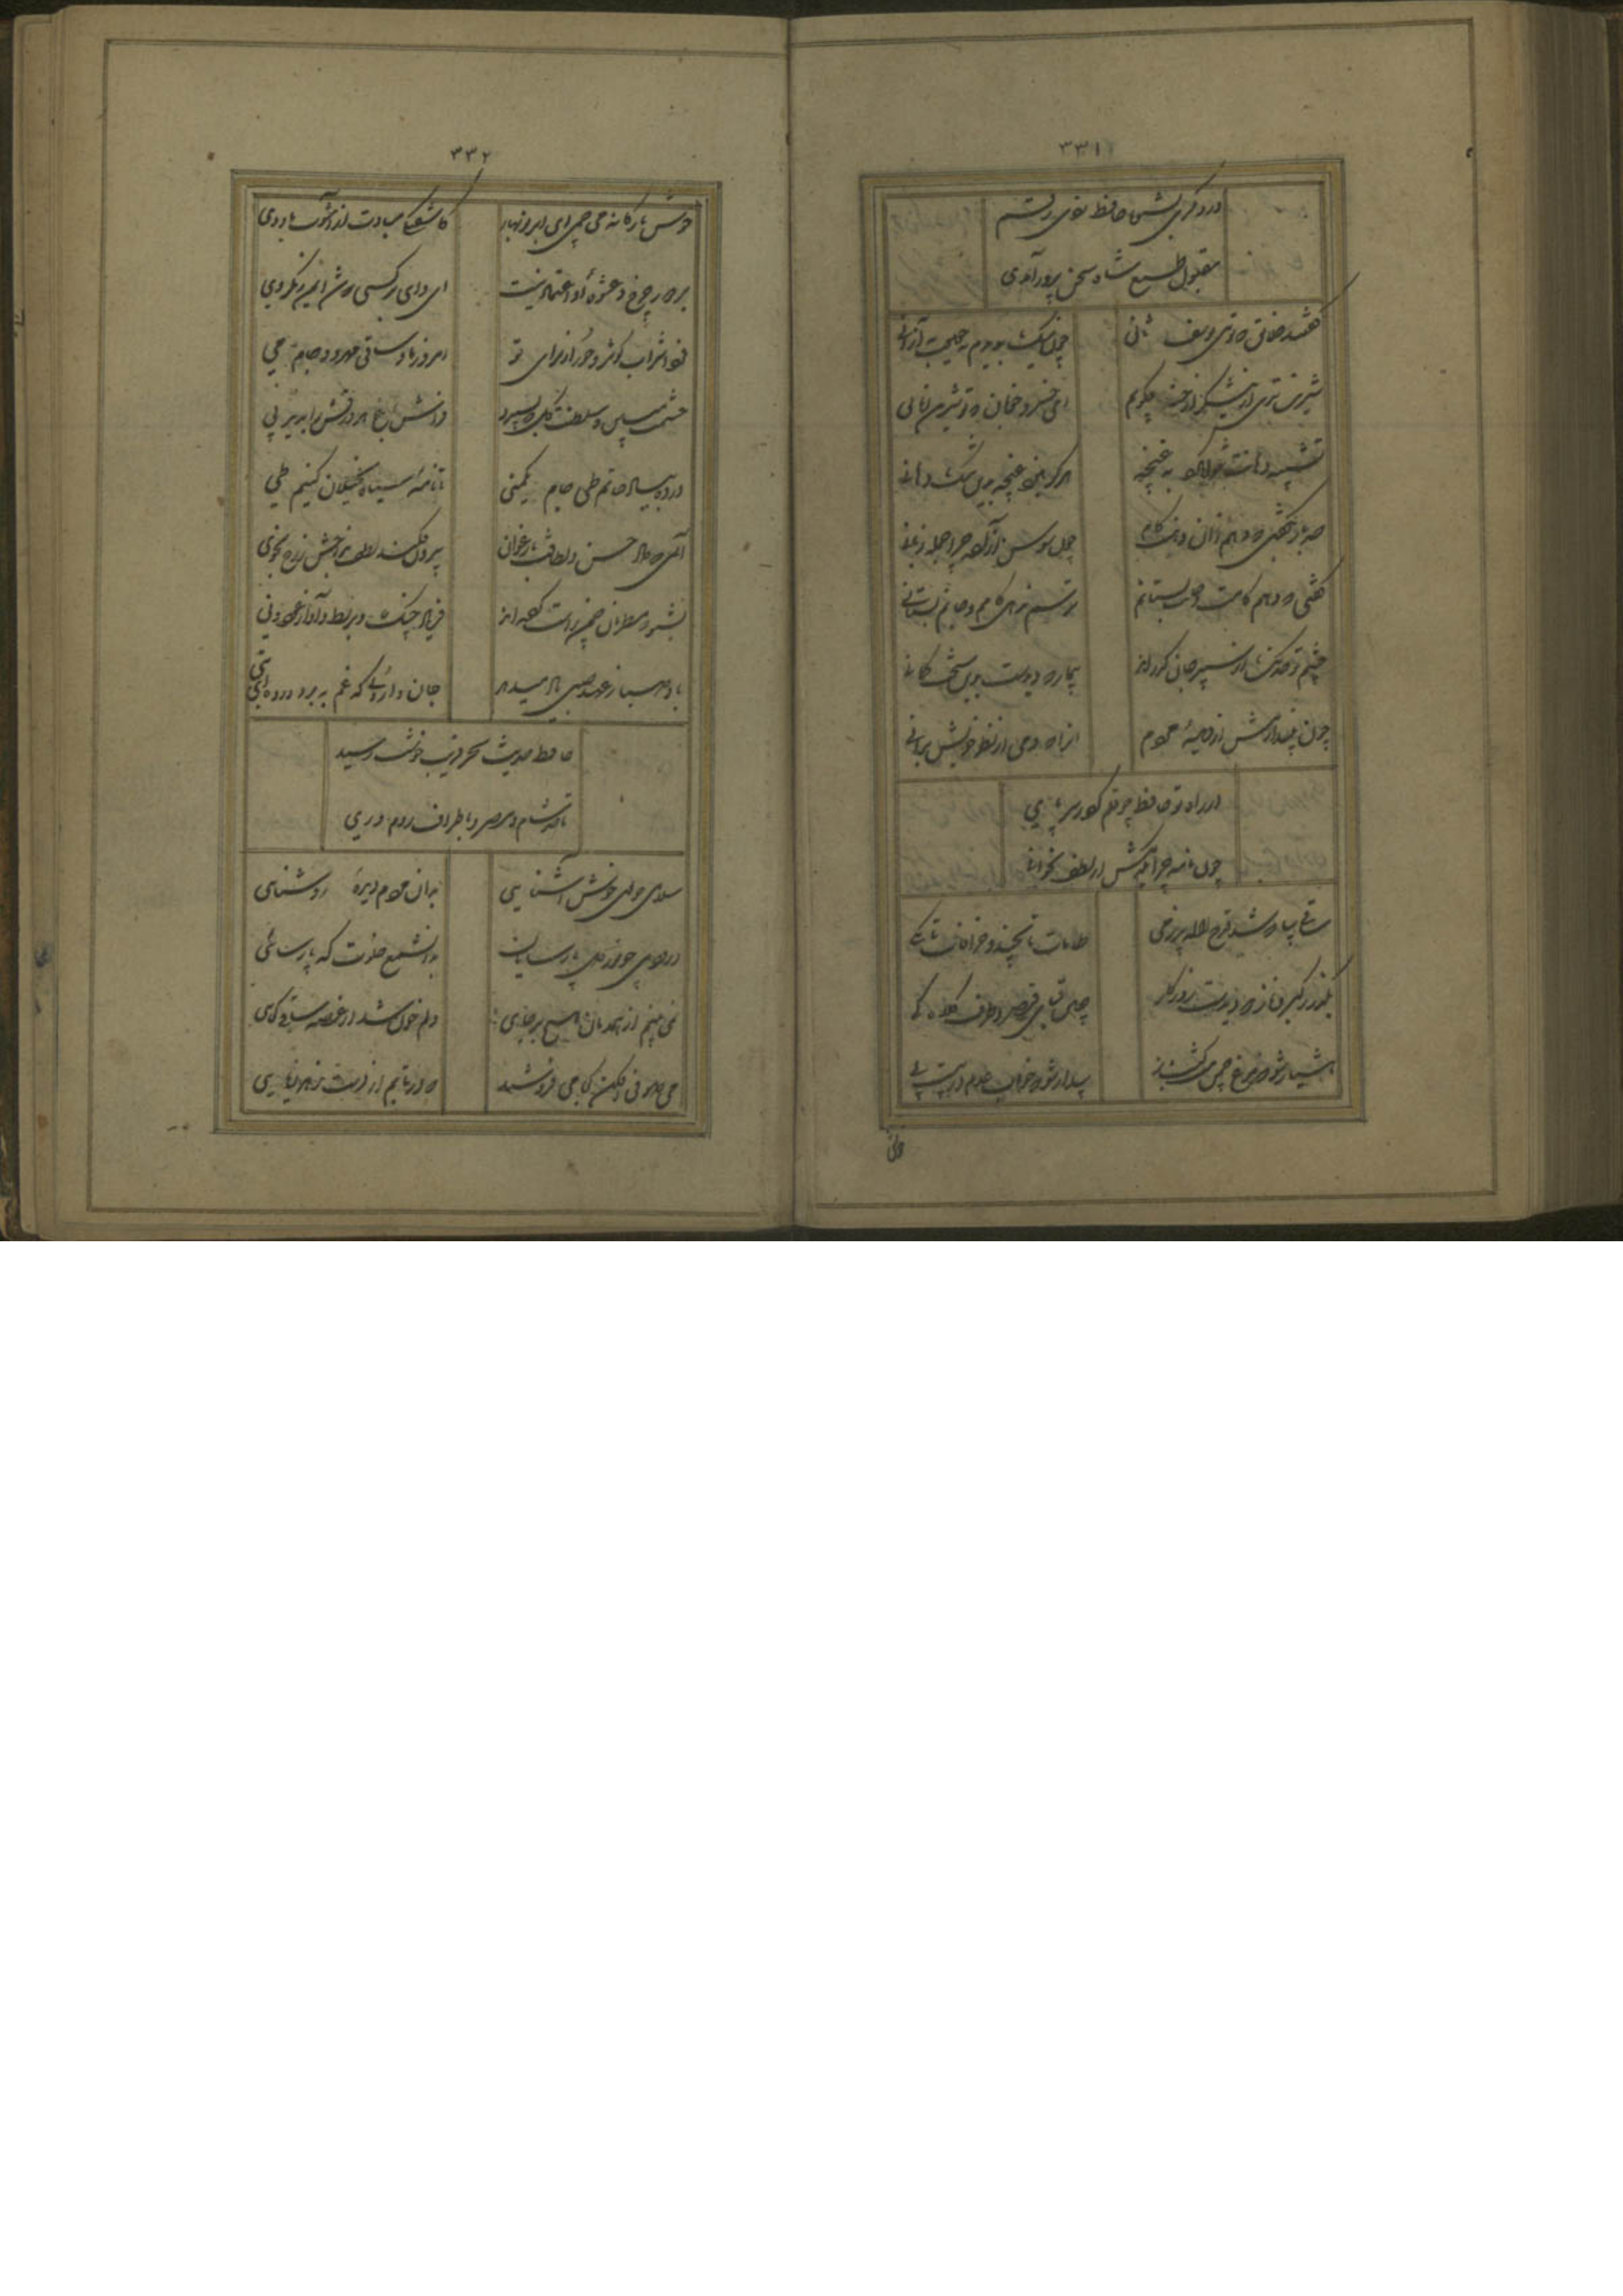 ۳۳۱
در دگری بشما حافظ نوی رقم
مقبول طبع شاه سخن پرور آمدی
گفتند خلایق که توی یوسف ثانی
چون نیک بدیدم به حقیقت به از آنی
شیرین تری از شکر ز خنده چگویم
ای خسرو خوبان که تو شیرین زمانی
تشبیه دهانت نتوان کرد به غنچه
هرگز نبود غنچه بدین تنگ دهانی
صد بار بگفتی که دهم زان دهنت کام
چون سوسن آزاده چرا جمله زبانی
گفتی که دهم کامت و جانت بستانم
ترسم ندهی کامم و جانم بستانی
چشم تو خدنگ از سپر جان گذراند
بیمار که دیدست بدین سخت کمانی
چون اشک بیندازیش از دیدهٔ مردم
انرا که دمی از نظر خویش برانی
از راه تو حافظ چو قلم کرد ز سر پای
چون نامه چرا یکدمش از لطف نخوانی
ساقی بیا که شد قدح لاله پر ز می
طامات تا بچند و خرافات تا بکی
بگذر ز کبر و ناز که دیدست روزگار
چین قبای قیصر و طرف کلاه کی
هشیار شو که مرغ چمن مست گشت باز
بیدار شو که خواب عدم در پیست پی
۳۳۲
خوش نازکانه می چمی ای ابر نوبهار
کاشفتگی مبادت از آشوب باد دی
بر مهر چرخ و عشوهٔ او اعتماد نیست
ای وای بر کسی که شد ایمن ز مکر وی
فردا شراب کوثر و حور از برای تو
امروز باده ساقی مهرو و جام می
حشمت مبین و سلطنت گل که بسپرد
فراش باغ هر ورقش را بزیر پی
در ده بیاد حاتم طی جام یکمنی
تا نامهٔ سیاه بخیلان کنیم طی
آن می که داد حسن و لطافت بارغوان
بیرون فکند لطف مزاجش ز رخ بخوی
بشنو که مطربان چمن راست کرده اند
فریاد چنگ و بربط و آواز عود و نی
باد صبا ز عهد صبی یاد میدهد
جان داروئی که غم ببرد در ده ای صبی
حافظ حدیث سحر فریب خوشت رسید
تا حد شام و مصر و باطراف روم و ری
سلامی چو بوی خوش آشنایی
بدان مردم دیدهٔ روشنایی
درودی چو نور دل پارسایان
بدان شمع خلوت که پارسائی
نمی بینم از همدمان هیچ بر جای
دلم خون شد از غصه ساقی کجایی
می صوفی افکن کجا می فروشند
که در تابم از دست زهد ریایی